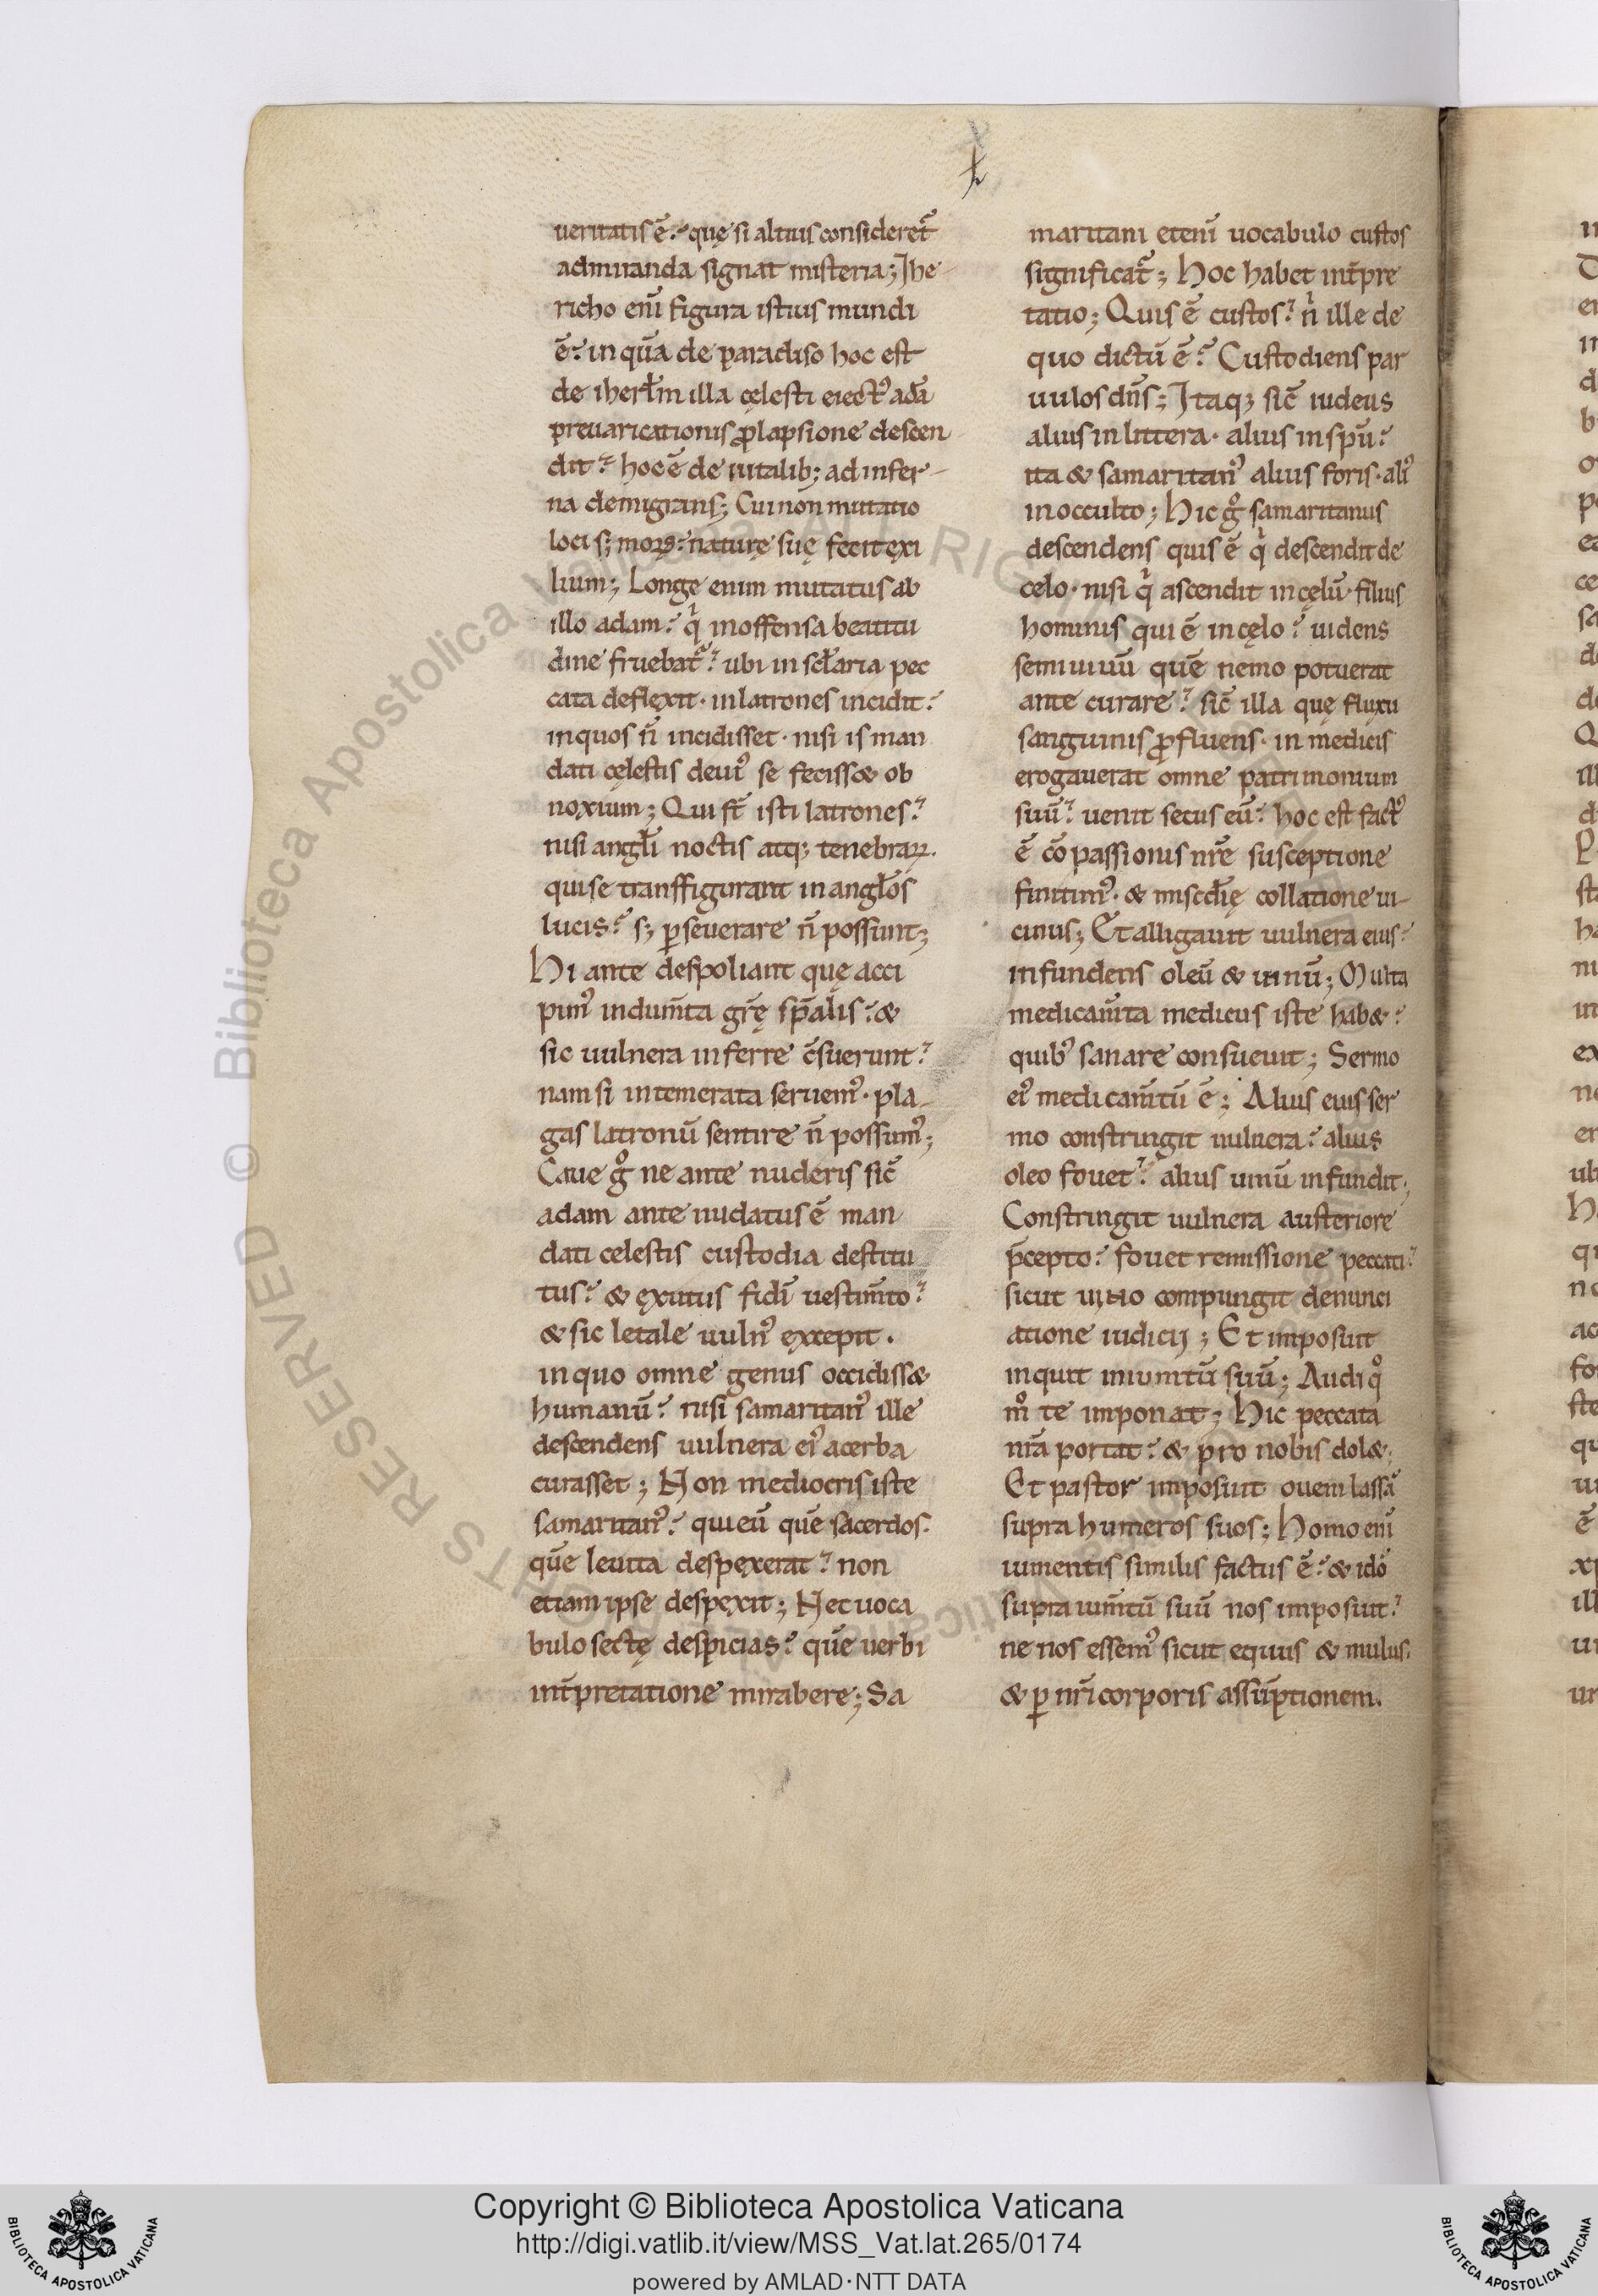 ueritatis ē. quę si altius consideret᷒
admiranda signat misteria; Jhe-
richo eni᷒ figura istius mundi
ē. in quā de paradiso hoc est
de iherłm illa cęlesti eiectꝰ adā
preuaricationis ꝓlapsione descen
dit. hoc ē de uitalib; ad infer-
na demigrans; Cui non mutatio
loci s; moꝝ. naturę suę fecit exi
lium; Longe enim mutatus ab
illo adam. q̇ inoffensa beatitu
dine fruebat᷒. ubi in scłaria pec
cata deflexit · in latrones incidit.
in quos n̄ incidisset · nisi is man
dati cęlestis deuiꝰ se fecisset ob
noxium; Qui st̄ isti latrones.
nisi angłi noctis atq; tenebraꝝ.
qui se transffigurant in angłos
lucis. s; ꝑseuerare n̄ possunt;
Hi ante despoliant quę acci
pimꝰ indum̄ta gr̄ę sp̄alis. &
sic uulnera inferre c̄suerunt.
nam si intemerata seruemꝰ · pla-
gas latronū sentire n̄ possumꝰ;
Caue g° ne ante nuderis sic̄
adam ante nudatus ē man
dati celestis custodia destitu
tus. & exutus fidi᷒ uestim̄to.
& sic letale uulnꝰ excepit.
in quo omne genus occidiss&
humanū. nisi samaritanꝰ ille
descendens uulnera eiꝰ acerba
curasset; Non mediocris iste
samaritanꝰ. qui eū quē sacerdos.
quē leuita despexerat. non
etiam ipse despexit; Nec uoca
bulo sectę despicias. quē uerbi
int̄pretatione mirabere; Sa
maritani eteni᷒ uocabulo custos
significat᷒; Hoc habet int̄pre
tatio; Quis ē custos. n̄ ille de
quo dictū ē. Custodiens par
uulos dn̄s; Itaq; sic̄ iudeus
alius in littera · alius in spū.
ita & samaritanꝰ alius foris · aliꝰ
in occulto; Hic g° samaritanus
descendens quis ē q̇ descendit de
celo · nisi q̇ ascendit in cęlū · filius
hominis qui ē in cęlo. uidens
semiuiuū quē nemo potuerat
ante curare. sic̄ illa quę fluxu
sanguinis ꝓfluens · in medicis
erogauerat omne patrimonium
suū. uenit secus eū. hoc est factꝰ
ē cō passionis nr̄e susceptione
finitimꝰ · & miscdię collatione ui-
cinus; Et alligauit uulnera eius.
infundens oleū & uinū; Multa
medicam̄ta medicus iste hab&.
quibꝰ sanare consueuit; Sermo
eiꝰ medicam̄tū ē; Alius eius ser
mo constringit uulnera. alius
oleo fouet. alius uinū infundit;
Constringit uulnera austeriore
p̄cepto. fouet remissione peccati.
sicut uino compungit denunci
atione iudicij; Et imposuit
inquit in iumtū suū; Audi q°
m° te imponat; Hic peccata
nr̄a portat. & pro nobis dol&;
Et pastor imposuit ouem lassā
supra humeros suos; Homo eni᷒
iumentis similis factus ē. & ido᷒
supra ium̄tū suū nos imposuit.
ne nos essemꝰ sicut equus & mulus.
& ꝑ nr̄i corporis assūptionem.
Copyright © Biblioteca Apostolica Vaticana
http://digi.vatlib.it/view/MSS_Vat.lat.265/0174
powered by AMLAD·NTT DATA
BIBLIOTECA APOSTOLICA VATICANA
BIBLIOTECA APOSTOLICA VATICANA